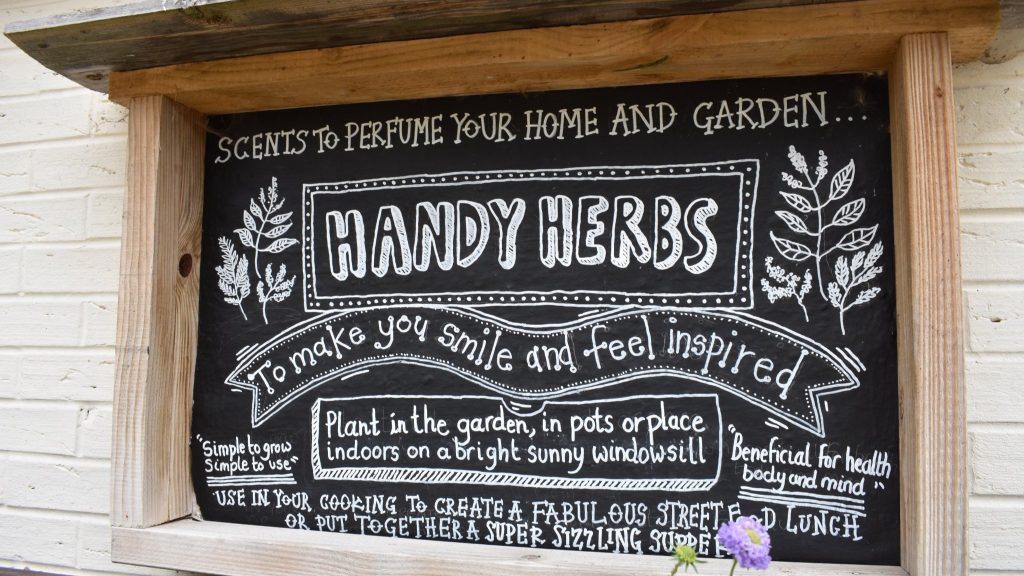 SCENTS TO PERFUME YOUR HOME AND GARDEN...
HANDY HERBS
To make you smile and feel inspired
Plant in the garden, in pots or place
indoors on a bright sunny windowsill
"Simple to grow
Simple to use"
"Beneficial for health
body and mind"
USE IN YOUR COOKING TO CREATE A FABULOUS STREET LUNCH
OR PUT TOGETHER A SUPER SIZZLING